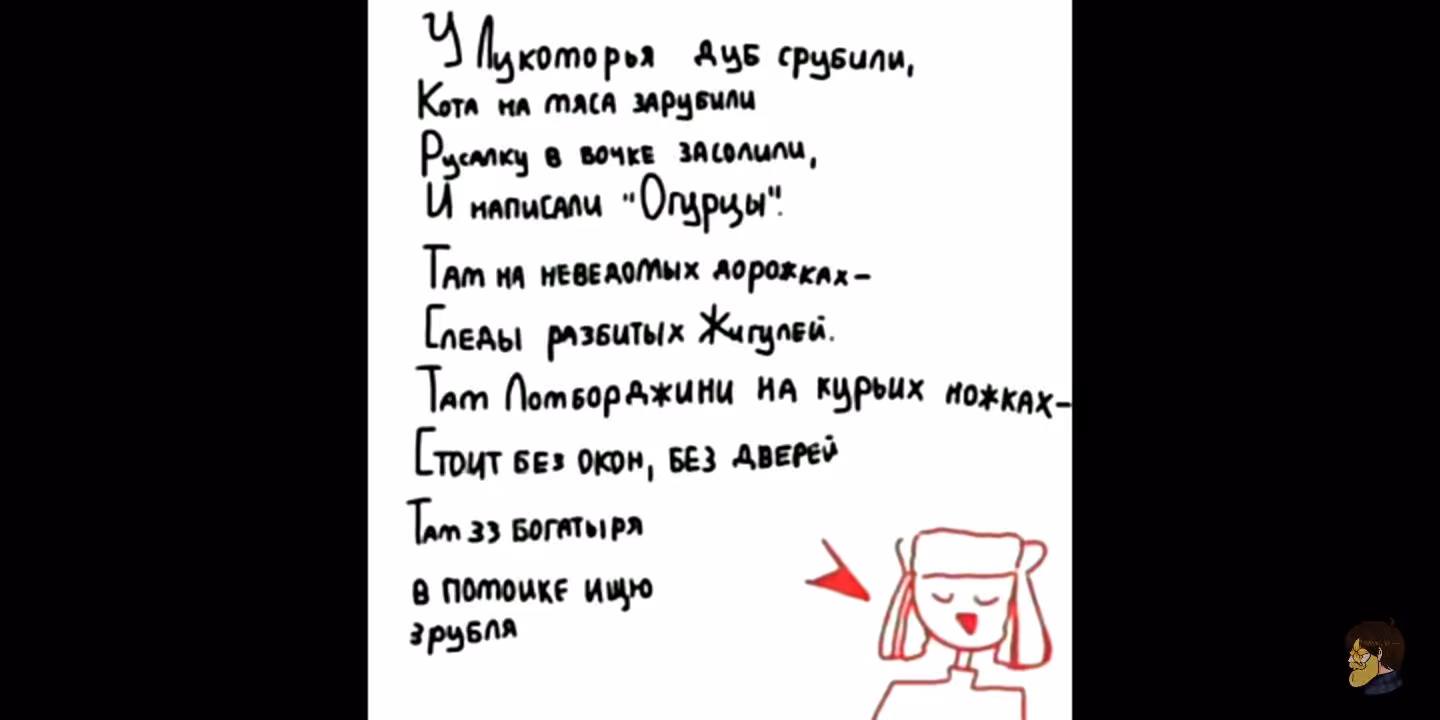 У Лукоторья дуб срубили,
Кота на мяса зарубили
Русалку в бочке засолили,
И написали "Огурцы".
Там на неведомых дорожках-
Следы разбитых Жигулей.
Там Ломборджини на курьих ножках-
Стоит без окон, без дверей
Там 33 богатыря
в помоике ищю
3 рубля